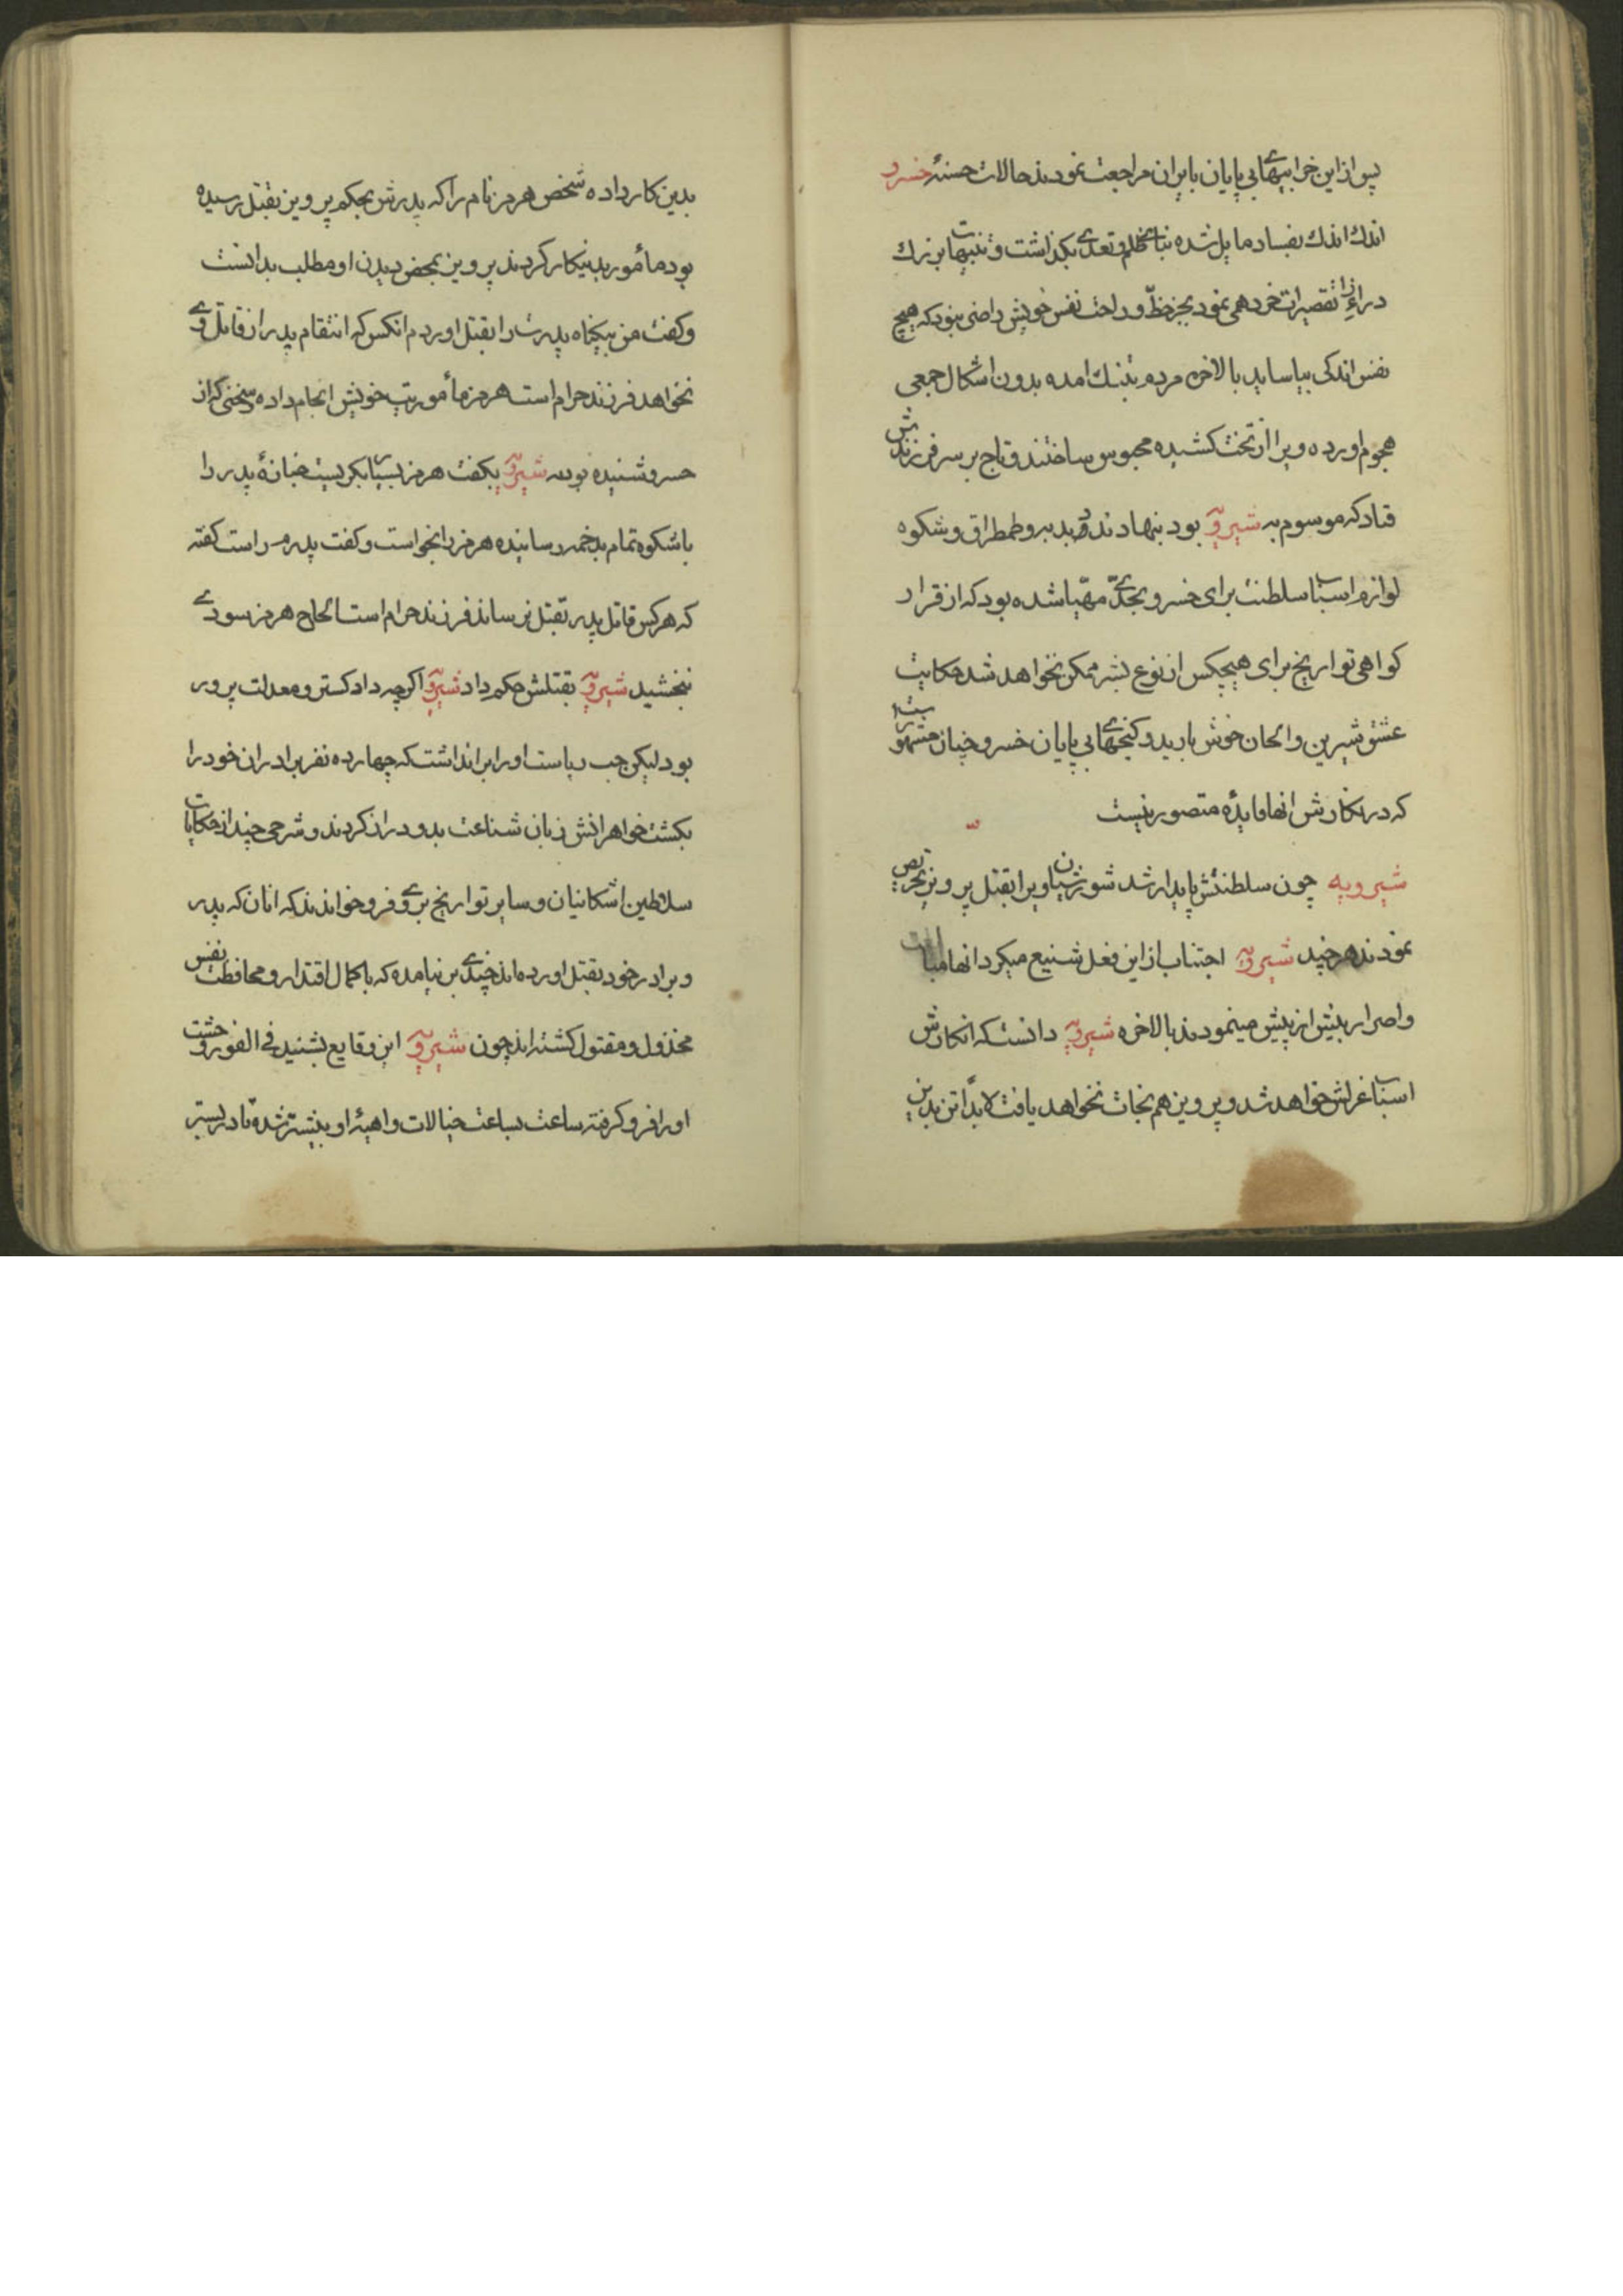 پس از این خرابیهای بی پایان بایران مراجعت نمودند حالات حسنهٔ خسرو
اندك اندك بفساد مایل شده بنای ظلم و تعدی بگذاشت و تنبیهات بزرك
در ازاءِ تقصیرات خرد همی نمود بجز حظّ و راحت نفس خویش راضی نبود که هیچ
نفس اندکی بیاساید بالاخره مردم بتنك امده بدون اشکال جمعی
هجوم اورده ویرا از تخت کشیده محبوس ساختند و تاج بر سر فرزندش
قباد که موسوم به شیرویه بود بنهادند و دبدبه و طمطراق و شکوه
لوازم اسباب سلطنت برای خسرو بحدّی مهیّا شده بود که از قرار
کواهی تواریخ برای هیچکس از نوع بشر ممکن نخواهد شد حکایت
عشق شیرین و الحان خوش باربد و کنجهای بی پایان خسرو چنان مشهور است
که در نکارش انها فایدهٔ متصور نیست
شیرویه چون سلطنتش پایدار شد شورشیان ویرا بقتل پرویز تحریص
نمودند هر چند شیرویه اجتناب از این فعل شنیع میکرد انها
و اصرار بیش از پیش مینمودند بالاخره شیرویه دانست که انکارش
اسباب عزلش خواهد شد و پرویز هم نجات نخواهد یافت لابدّاً تن بدین
بدین کار داده شخص هرمز نام را که پدرش بحکم پرویز بقتل رسیده
بود مأمور بدینکار کردند پرویز بمحض دیدن او مطلب بدانست
و کفت من بیکناه پدرت را بقتل اوردم انکس که انتقام پدر از قاتل وی
نخواهد فرزند حرام است هرمز مأموریت خویش انجام داده سخنی که از
خسرو شنیده بود به شیرویه بکفت هرمز بسیار بکریست جنازهٔ پدر را
با شکوه تمام بدخمه رسانیده هرمز را بخواست و کفت پدرم راست کفته
که هرکس قاتل پدر بقتل نرساند فرزند حرام است الحاح هرمز سودی
نبخشید شیرویه بقتلش حکم داد شیرویه اکرچه دادکستر و معدلت پرور
بود لیکن حب ریاست او را بر انداشت که چهارده نفر برادران خود را
بکشت خواهرانش زبان شناعت بدو دراز کردند و شرحی چند از حکایات
سلاطین اشکانیان و سایر تواریخ بر وی فرو خواندند که انان که پدر
و برادر خود بقتل اورده اند چندی بر نیامده که با کمال اقتدار و محافظت نفس
مخذول و مقتول کشته اند چون شیرویه این وقایع بشنید فی الفور وحشت
او را فرو کرفته ساعت بساعت خیالات واهیهٔ او بیشتر شده تا در بستر